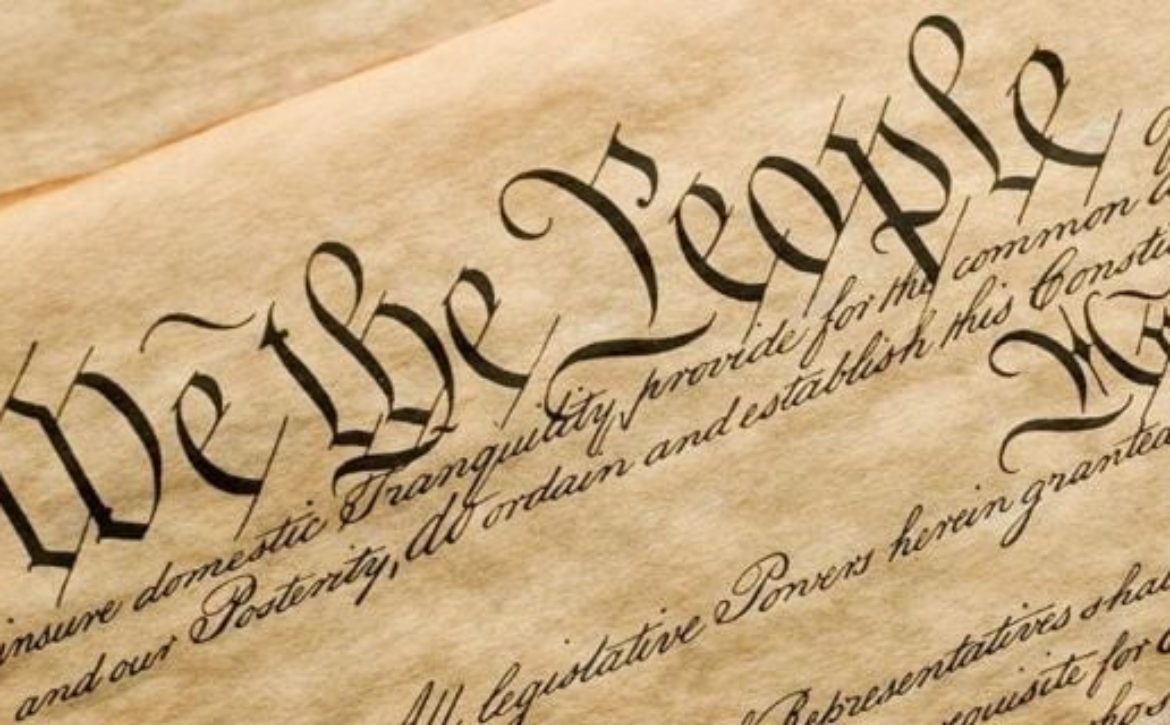 We the People
insure domestic Tranquility, provide for the common
and our Posterity, do ordain and establish this
All legislative Powers herein granted
Representatives
requisite for